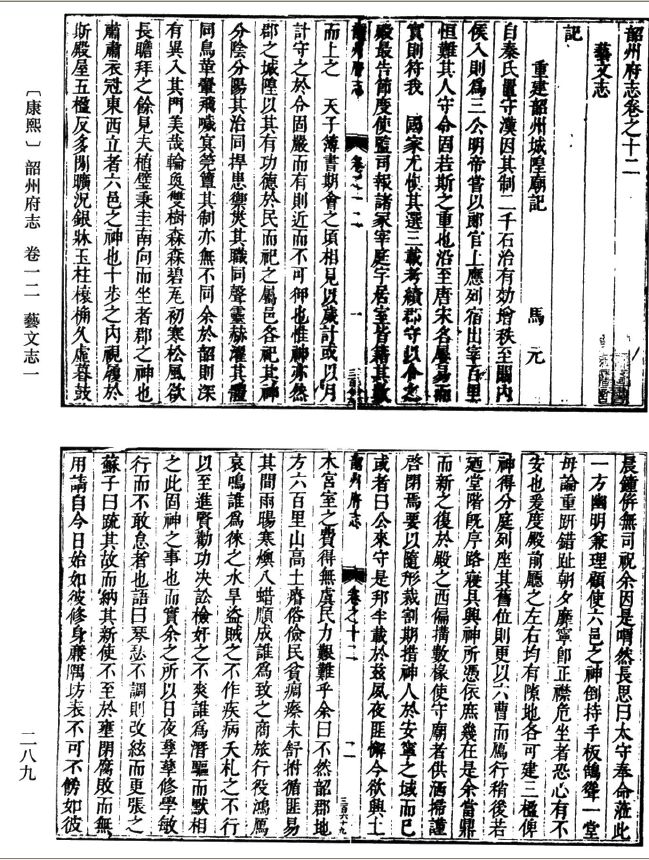 韶州府志卷之十二
藝文志
記
重建韶州城隍廟記 馬元
自秦氏置守漢因其制二千石治有効增秩至關內
侯入則爲三公明帝嘗以郎官上應列宿出宰百里
恒難其人守令固若斯之重也沿至唐宋各屢易而
實則符我 國家尤慎其選三載考績郡守以合之
殿最告節度使監司報諸冢宰庭宇居室皆籍其數
韶州府志 卷之十二 一
而上之 天子簿書期會之頃相見以歲計或以月
計守之於令固嚴而有則近而不可御也惟神亦然
郡之城隍以其有功德於民而祀之屬邑各祀其神
分陰分陽其治同捍患禦災其職同聲靈赫濯其體
同鳥革翬飛噦冥筦簟其制亦無不同余於韶則深
有異入其門美哉輪奐雙樹森森碧瓦初寒松風欲
長瞻拜之餘見夫植璧秉圭南向而坐者郡之神也
肅肅衣冠東西立者六邑之神也十步之內視履於
斯殿屋五楹反多閒曠況銀牀玉柱榱桷久虛暮鼓
晨鐘併無司祝余因是喟然長思曰太守奉命蒞此
一方幽明兼理顧使六邑之神倒持手板鵠聳一堂
毋論重趼錯趾朝夕靡寧卽正襟危坐者恐心有不
安也爰度殿前廳之左右均有隙地各可建三楹俾
神得分庭列座其舊位則更以六曹而鴈行稍後若
廼堂階旣序路寢具興神所憑依庶幾在是余當鼎
而新之復於殿之西偏搆數椽使守廟者供洒掃謹
啓閉焉要以隨形裁割期措神人於安寧之域而已
或者曰公來守是邦半載於茲風夜匪懈今欲興土
韶州府志 卷之十二 二
木宮室之費得無虞民力艱難乎余曰不然韶郡地
方六百里山高土瘠俗儉民貧瘡瘵未舒拊循匪易
其間雨暘寒燠八蜡順成誰爲致之商旅行役鴻鴈
哀鳴誰爲徠之水旱盜賊之不作疾病夭札之不行
以至進賢勸功決訟檢奸之不爽誰爲潛驅而默相
之此固神之事也而實余之所以日夜孳孳修學敏
行而不敢怠者也語曰琴瑟不調則改絃而更張之
蘇子曰疏其故而納其新使不至於壅閉腐敗而無
用請自今日始如彼修身廉隅坊表不可不傍如彼
〔康熙〕韶州府志 卷一二 藝文志一
二八九